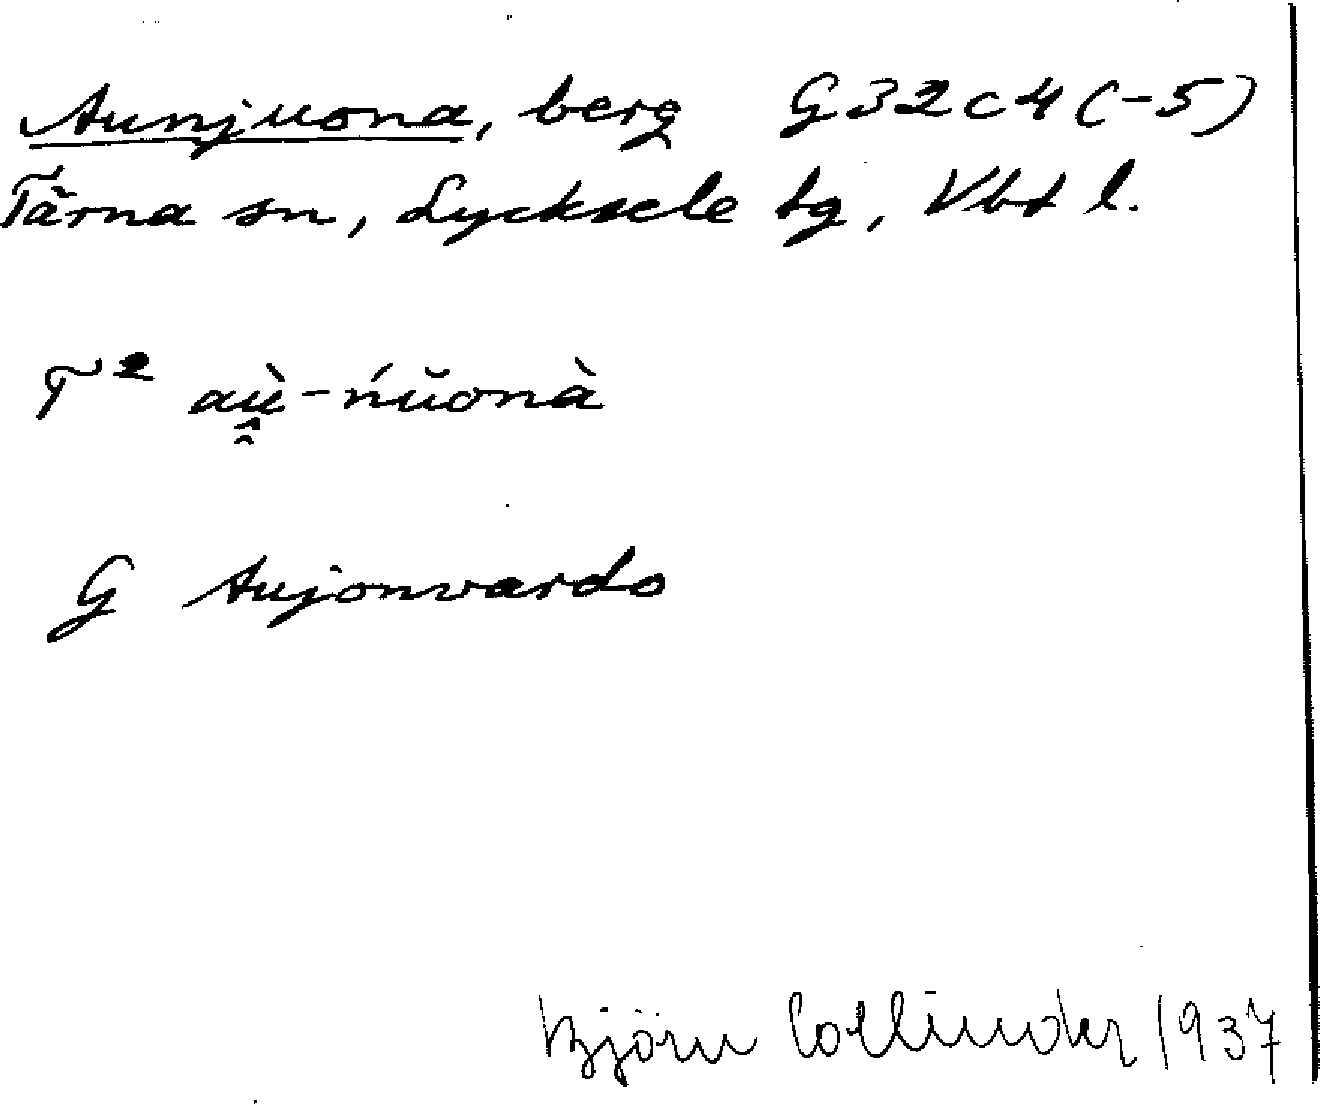 Aunjuona, berg G32c4(-5)
Tärna sn, Lycksele tg, Vbt l.
T² aû̯̀-ńŭonà
G Aujonvardo
Björn Collinder 1937